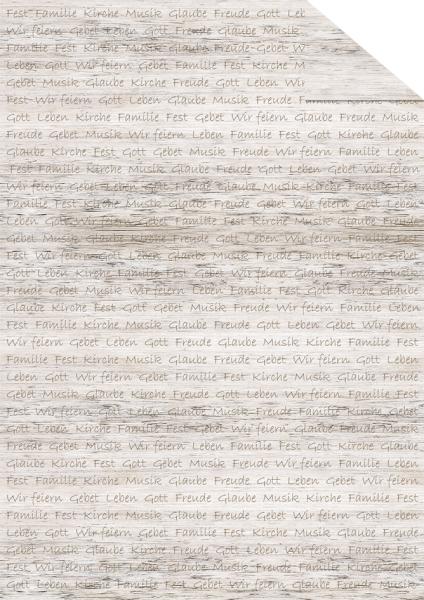 Fest Familie Kirche Musik Glaube Freude Gott Leb
Wir feiern Gebet Leben Gott Freude Glaube Musik
Familie Fest Kirche Musik Glaube Freude Gebet W
Leben Gott Wir feiern Gebet Familie Fest Kirche M
Gebet Musik Glaube Kirche Freude Gott Leben Wir
Fest Wir feiern Gott Leben Glaube Musik Freude F
Gott Leben Kirche Familie Fest Gebet Wir feiern Glaube Freude Musik
Freude Gebet Musik Wir feiern Leben Familie Fest Gott Kirche Glaube
Glaube Kirche Fest Gott Gebet Musik Freude Wir feiern Familie Leben
Fest Familie Kirche Musik Glaube Freude Gott Leben Gebet Wir feiern
Wir feiern Gebet Leben Gott Freude Glaube Musik Kirche Familie Fest
Familie Fest Kirche Musik Glaube Freude Gebet Wir feiern Gott Leben
Leben Gott Wir feiern Gebet Familie Fest Kirche Musik Glaube Freude
Gebet Musik Glaube Kirche Freude Gott Leben Wir feiern Familie Fest
Fest Wir feiern Gott Leben Glaube Musik Freude Familie Kirche Gebet
Gott Leben Kirche Familie Fest Gebet Wir feiern Glaube Freude Musik
Freude Gebet Musik Wir feiern Leben Familie Fest Gott Kirche Glaube
Glaube Kirche Fest Gott Gebet Musik Freude Wir feiern Familie Leben
Fest Familie Kirche Musik Glaube Freude Gott Leben Gebet Wir feiern
Wir feiern Gebet Leben Gott Freude Glaube Musik Kirche Familie Fest
Familie Fest Kirche Musik Glaube Freude Gebet Wir feiern Gott Leben
Leben Gott Wir feiern Gebet Familie Fest Kirche Musik Glaube Freude
Gebet Musik Glaube Kirche Freude Gott Leben Wir feiern Familie Fest
Fest Wir feiern Gott Leben Glaube Musik Freude Familie Kirche Gebet
Gott Leben Kirche Familie Fest Gebet Wir feiern Glaube Freude Musik
Freude Gebet Musik Wir feiern Leben Familie Fest Gott Kirche Glaube
Glaube Kirche Fest Gott Gebet Musik Freude Wir feiern Familie Leben
Fest Familie Kirche Musik Glaube Freude Gott Leben Gebet Wir feiern
Wir feiern Gebet Leben Gott Freude Glaube Musik Kirche Familie Fest
Familie Fest Kirche Musik Glaube Freude Gebet Wir feiern Gott Leben
Leben Gott Wir feiern Gebet Familie Fest Kirche Musik Glaube Freude
Gebet Musik Glaube Kirche Freude Gott Leben Wir feiern Familie Fest
Fest Wir feiern Gott Leben Glaube Musik Freude Familie Kirche Gebet
Gott Leben Kirche Familie Fest Gebet Wir feiern Glaube Freude Musik